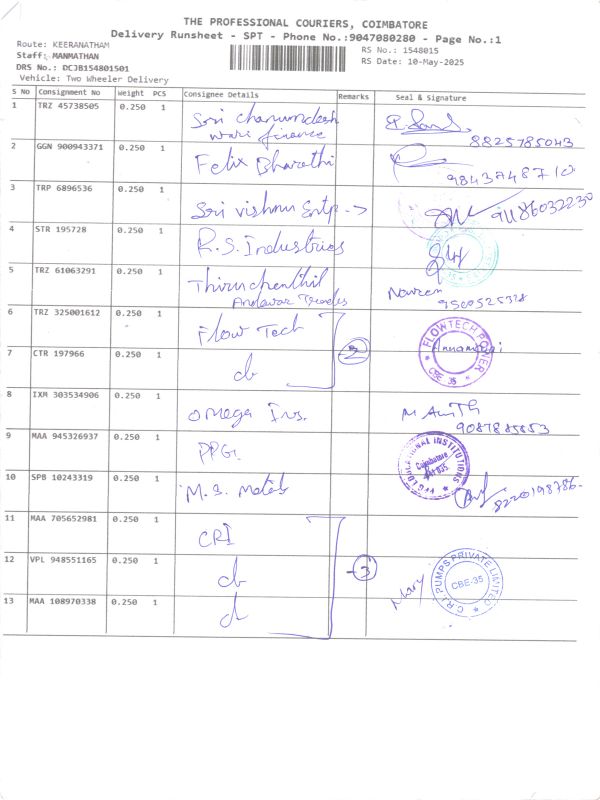 THE PROFESSIONAL COURIERS, COIMBATORE
Delivery Runsheet - SPT - Phone No.:9047080280 - Page No.:1
Route: KEERANATHAM
RS No.: 1548015
Staff: MANMATHAN
RS Date: 10-May-2025
DRS No.: DCJB154801501
Vehicle: Two Wheeler Delivery
S No Consignment No Weight PCS Consignee Details Remarks Seal & Signature
1 TRZ 45738505 0.250 1 Sri chamundesh
wari finance
8825785043
2 GGN 900943371 0.250 1 Felix Bharathi
9843748710
3 TRP 6896536 0.250 1 Sri vishnu Entp ->
9486032230
4 STR 195728 0.250 1 R.S. Industries
5 TRZ 61063291 0.250 1 Thiruchenthil Naveen
Andavar Traders 9500525328
6 TRZ 325001612 0.250 1 Flow Tech
2
FLOWTECH POWER
CBE 35
7 CTR 197966 0.250 1 do
8 IXM 303534906 0.250 1 Omega Ins. M
9087885853
9 MAA 945326937 0.250 1 PPG.
PPG EDUCATIONAL INSTITUTIONS
Coimbatore
10 SPB 10243319 0.250 1 M.S. Metals
8220198786
11 MAA 705652981 0.250 1 CRI
12 VPL 948551165 0.250 1 do
3
Mary
C.R.I. PUMPS PRIVATE LIMITED
CBE-35
13 MAA 108970338 0.250 1 do